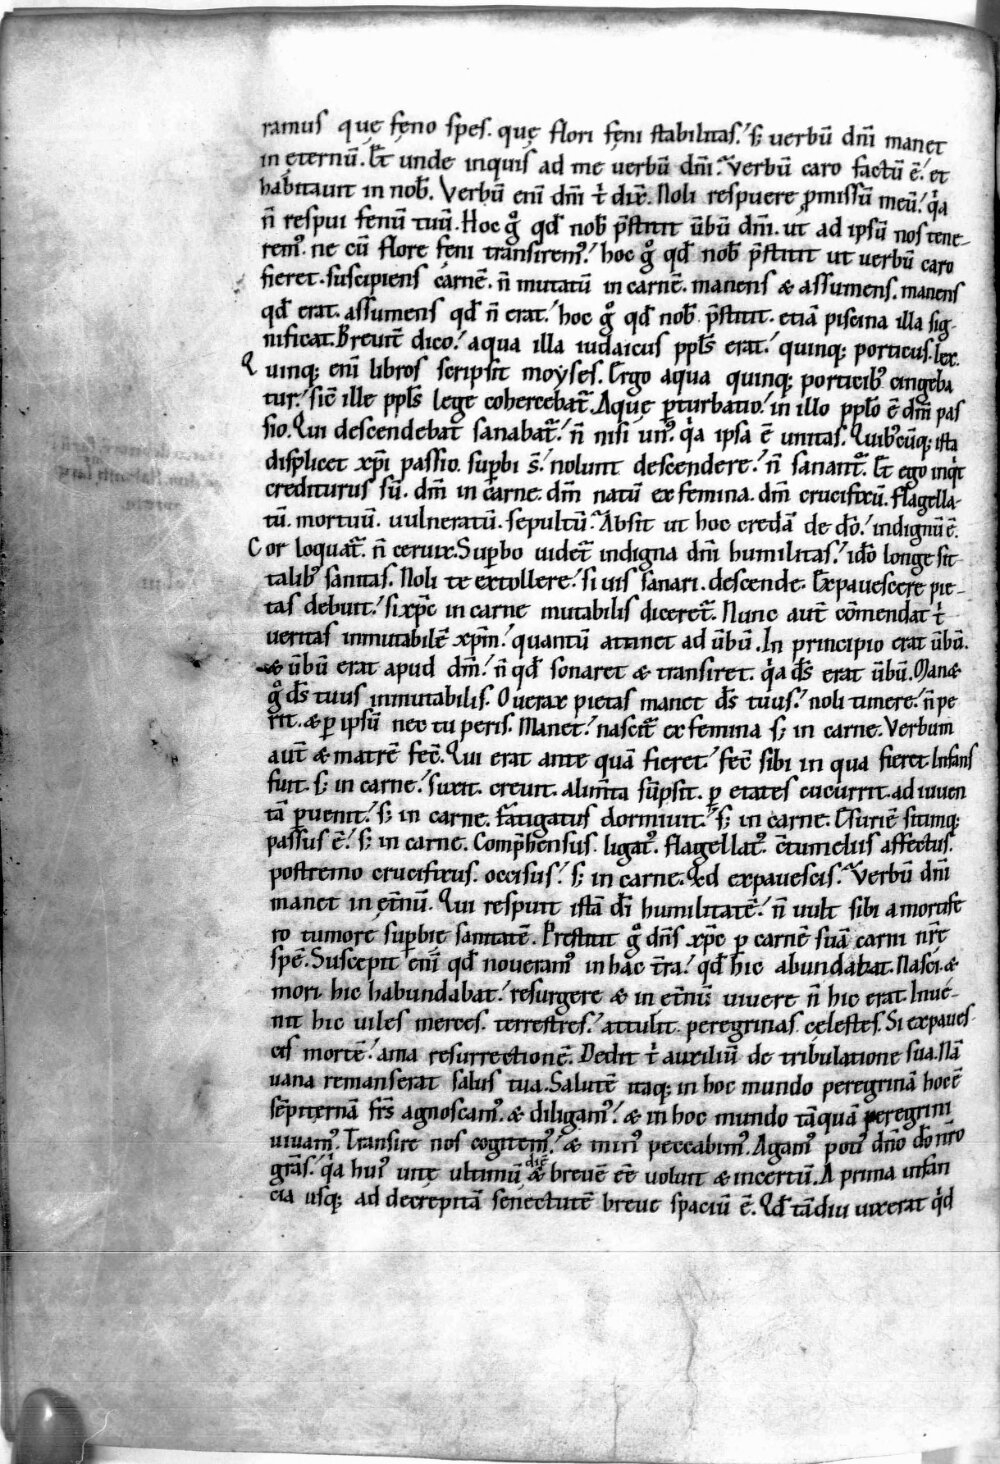 ramus quę fęno spes. quę flori fęni stabilitas; s; uerbū dn̄i manet
in ęternū. Et̄ unde inquis ad me uerbū dn̄i? Verbū caro factū ē; et
habitauit in nob̄. Verbū eni͞ dn̄i t͛ dix̄. Noli respuere p̱missū meū; qͥa
n̄ respui fenū tuū. Hoc gͦ qd̄ nob̄ p̄stitit ūbū dn̄i. ut ad ipsū nos tene-
remꝰ. ne cū flore fęni transiremꝰ; hoc gͦ qd̄ nob̄ p̄stitit ut uerbū caro
fieret. suscipiens carnē. n̄ mutatū in carnē. manens & assumens. manens
qd̄ erat. assumens qd̄ n̄ erat; hoc gͦ qd̄ nob̄ p̄stitit. etiā piscina illa sig-
nificat. Breuit̄ dico; aqua illa iudaicus ppl̄s erat; quinq; porticus. lex.
Quinq; eni͞ libros scripsit moyses. Ergo aqua quinq; porticibꝰ cingeba
tur; sic̄ ille ppl̄s lege cohercebat̄. Aquę p̱turbatio; in illo ppl̄o ē dn̄i pas
sio. Qui descendebat sanabat̄; n̄ nisi unꝰ. qͥa ipsa ē unitas. Quibꝰcūq; ista
displicet xp̄i passio. sup̱bi s̄; nolunt descendere; n̄ sanant̄. Et̄ ego inqͥt
crediturus sū. dm̄ in carne. dm̄ natū ex femina. dm̄ crucifixū. flagella-
tū. mortuū. uulneratū. sepultū? Absit ut hoc credā de dō; indignū ē.
Cor loquat̄. n̄ ceruix. Sup̱bo uidet̄ indigna dn̄i humilitas; idō longe sit
talibꝰ sanitas. Noli te extollere; si uis sanari. descende. Expauescere pie-
tas debuit; si xp̄c in carne mutabilis diceret̄. Nunc aut̄ cōmendat t͛
ueritas inmutabilē xp̄m; quantū attinet ad ūbū. In principio erat ūbū.
& ūbū erat apud dm̄; n̄ qd̄ sonaret & transiret. qͥa ds̄ erat ūbū. Man&
gͦ ds̄ tuus inmutabilis. O uerax pietas manet ds̄ tuus; noli timere; n̄ pe
rit. & p̱ ipsū nec tu peris. Manet; nascit̄ ex femina s; in carne. Verbum
aut̄ & matrē fec̄. Qui erat ante quā fieret; fec̄ sibi in qua fieret. Infans
fuit. s; in carne; suxit. creuit. alim̄ta sūpsit. p̱ etates cucurrit. ad iuuen
tā p̱uenit; s; in carne. fatigatus dormiuit; s; in carne. Esuriē sitimq;
passus ē; s; in carne. Comp̄hensus. ligatꝰ. flagellatꝰ. c̄tumeliis affectus.
postremo crucifixus. occisus; s; in carne. Qd̄ expauescis? Verbū dn̄i
manet in ęt̄nū. Qui respuit istā dī humilitatē; n̄ uult sibi a mortife
ro tumore sup̱bię sanitatē. Prestitit gͦ dn̄s xp̄c p̱ carnē suā carni nr̄e
spē. Suscepit eni͞ qd̄ noueramꝰ in hac t̄ra; qd̄ hic abundabat. Nasci &
mori hic habundabat; resurgere & in et̄nū uiuere n̄ hic erat. Inue-
nit hic uiles merces. terrestres; attulit peregrinas. celestes. Si expaues-
cis mortē; ama resurrectionē. Dedit t͛ auxiliū de tribulatione sua. Nā
uana remanserat salus tua. Salutē itaq; in hoc mundo peregrinā hoc ē
sēpiternā frs̄ agnoscamꝰ. & diligamꝰ; & in hoc mundo tāquā peregrini
uiuamꝰ. Transire nos cogitemꝰ; & minꝰ peccabimꝰ. Agamꝰ potiꝰ dn̄o dō nr̄o
grās; qͥa huiꝰ uitę ultimū diē & breuē eē uoluit & incertū. A prima infan
cia usq; ad decrepitā senectutē breue spaciū ē. Qd̄ tādiu uixerat qͥd